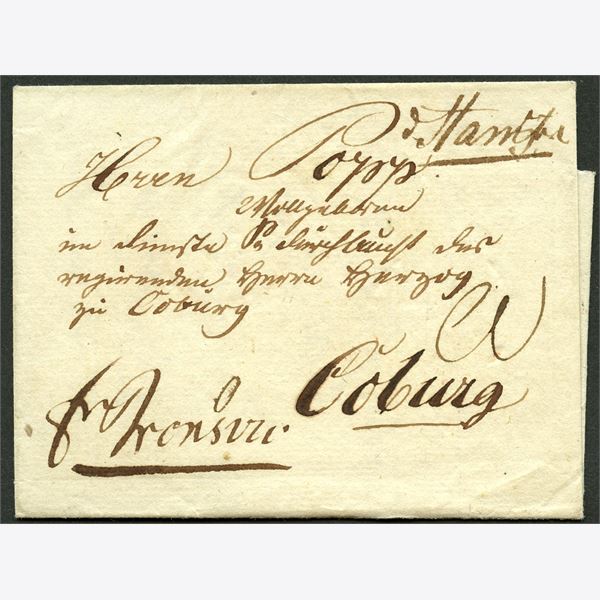 Herrn Popp
Wollgeboren
im dienste Sr durchlaucht des
regirenden Herrn Herzog
zu Coburg
Coburg
fr